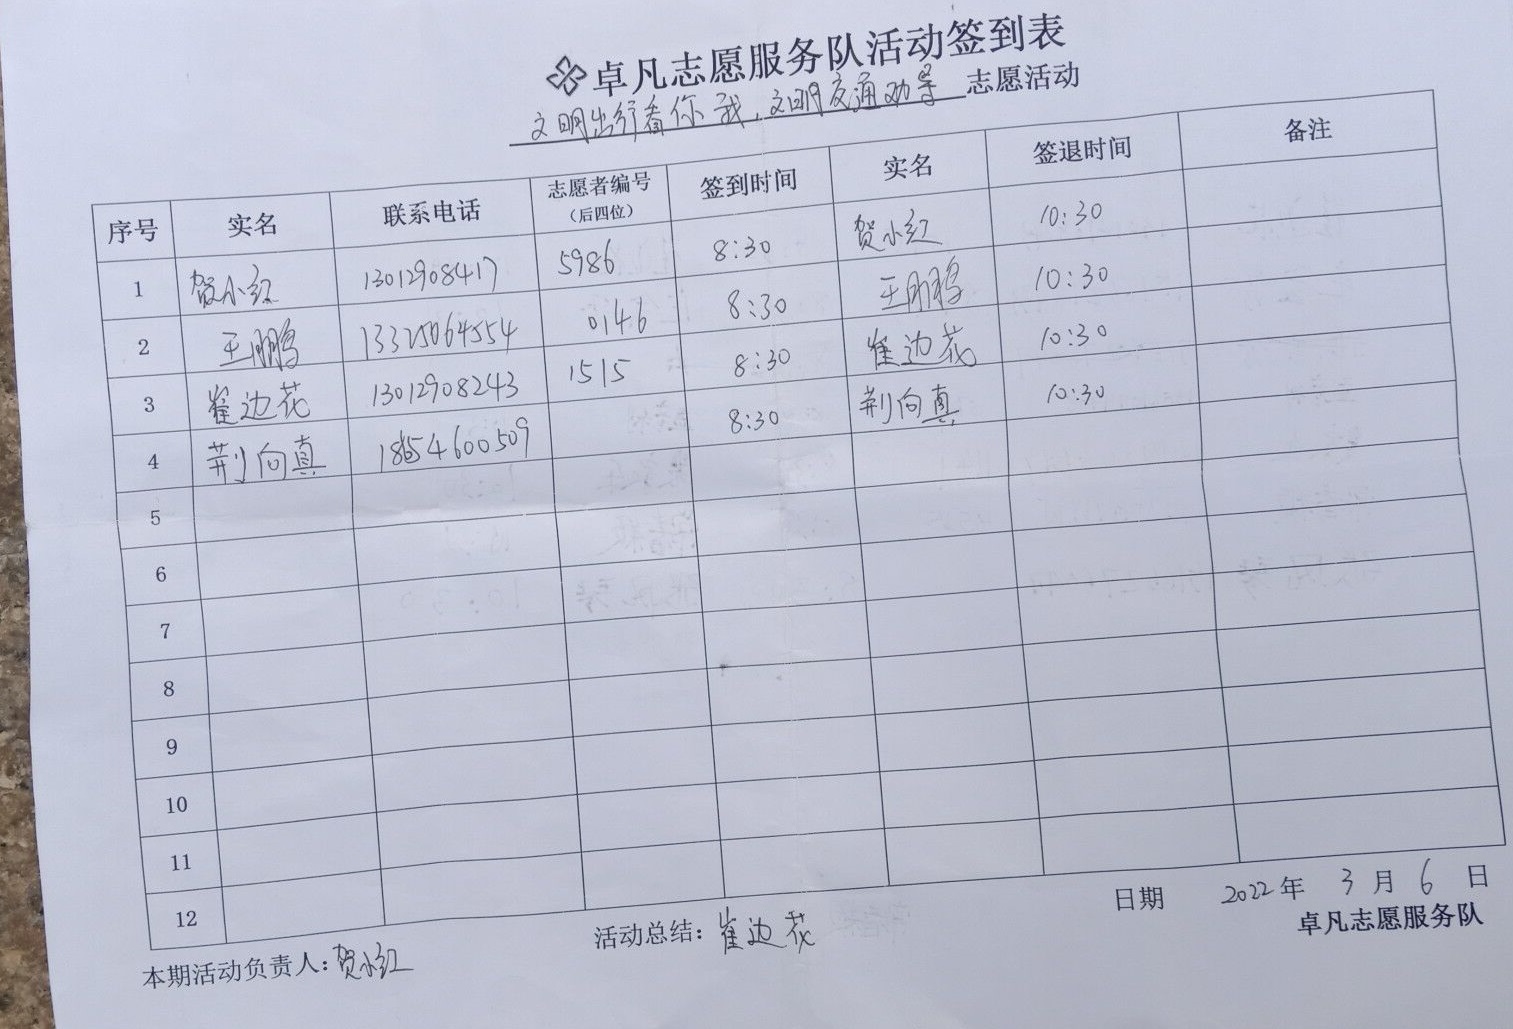 卓凡志愿服务队活动签到表
文明出行看你我,文明交通劝导 志愿活动
序号 实名 联系电话 志愿者编号(后四位) 签到时间 实名 签退时间 备注
1 贺小红 13012908417 5986 8:30 贺小红 10:30
2 王鹏 13325064554 0146 8:30 王鹏 10:30
3 崔边花 13012908243 1515 8:30 崔边花 10:30
4 荆向真 18654600509 8:30 荆向真 10:30
5
6
7
8
9
10
11
12
日期 2022年 3月 6日
本期活动负责人:贺小红 活动总结:崔边花 卓凡志愿服务队